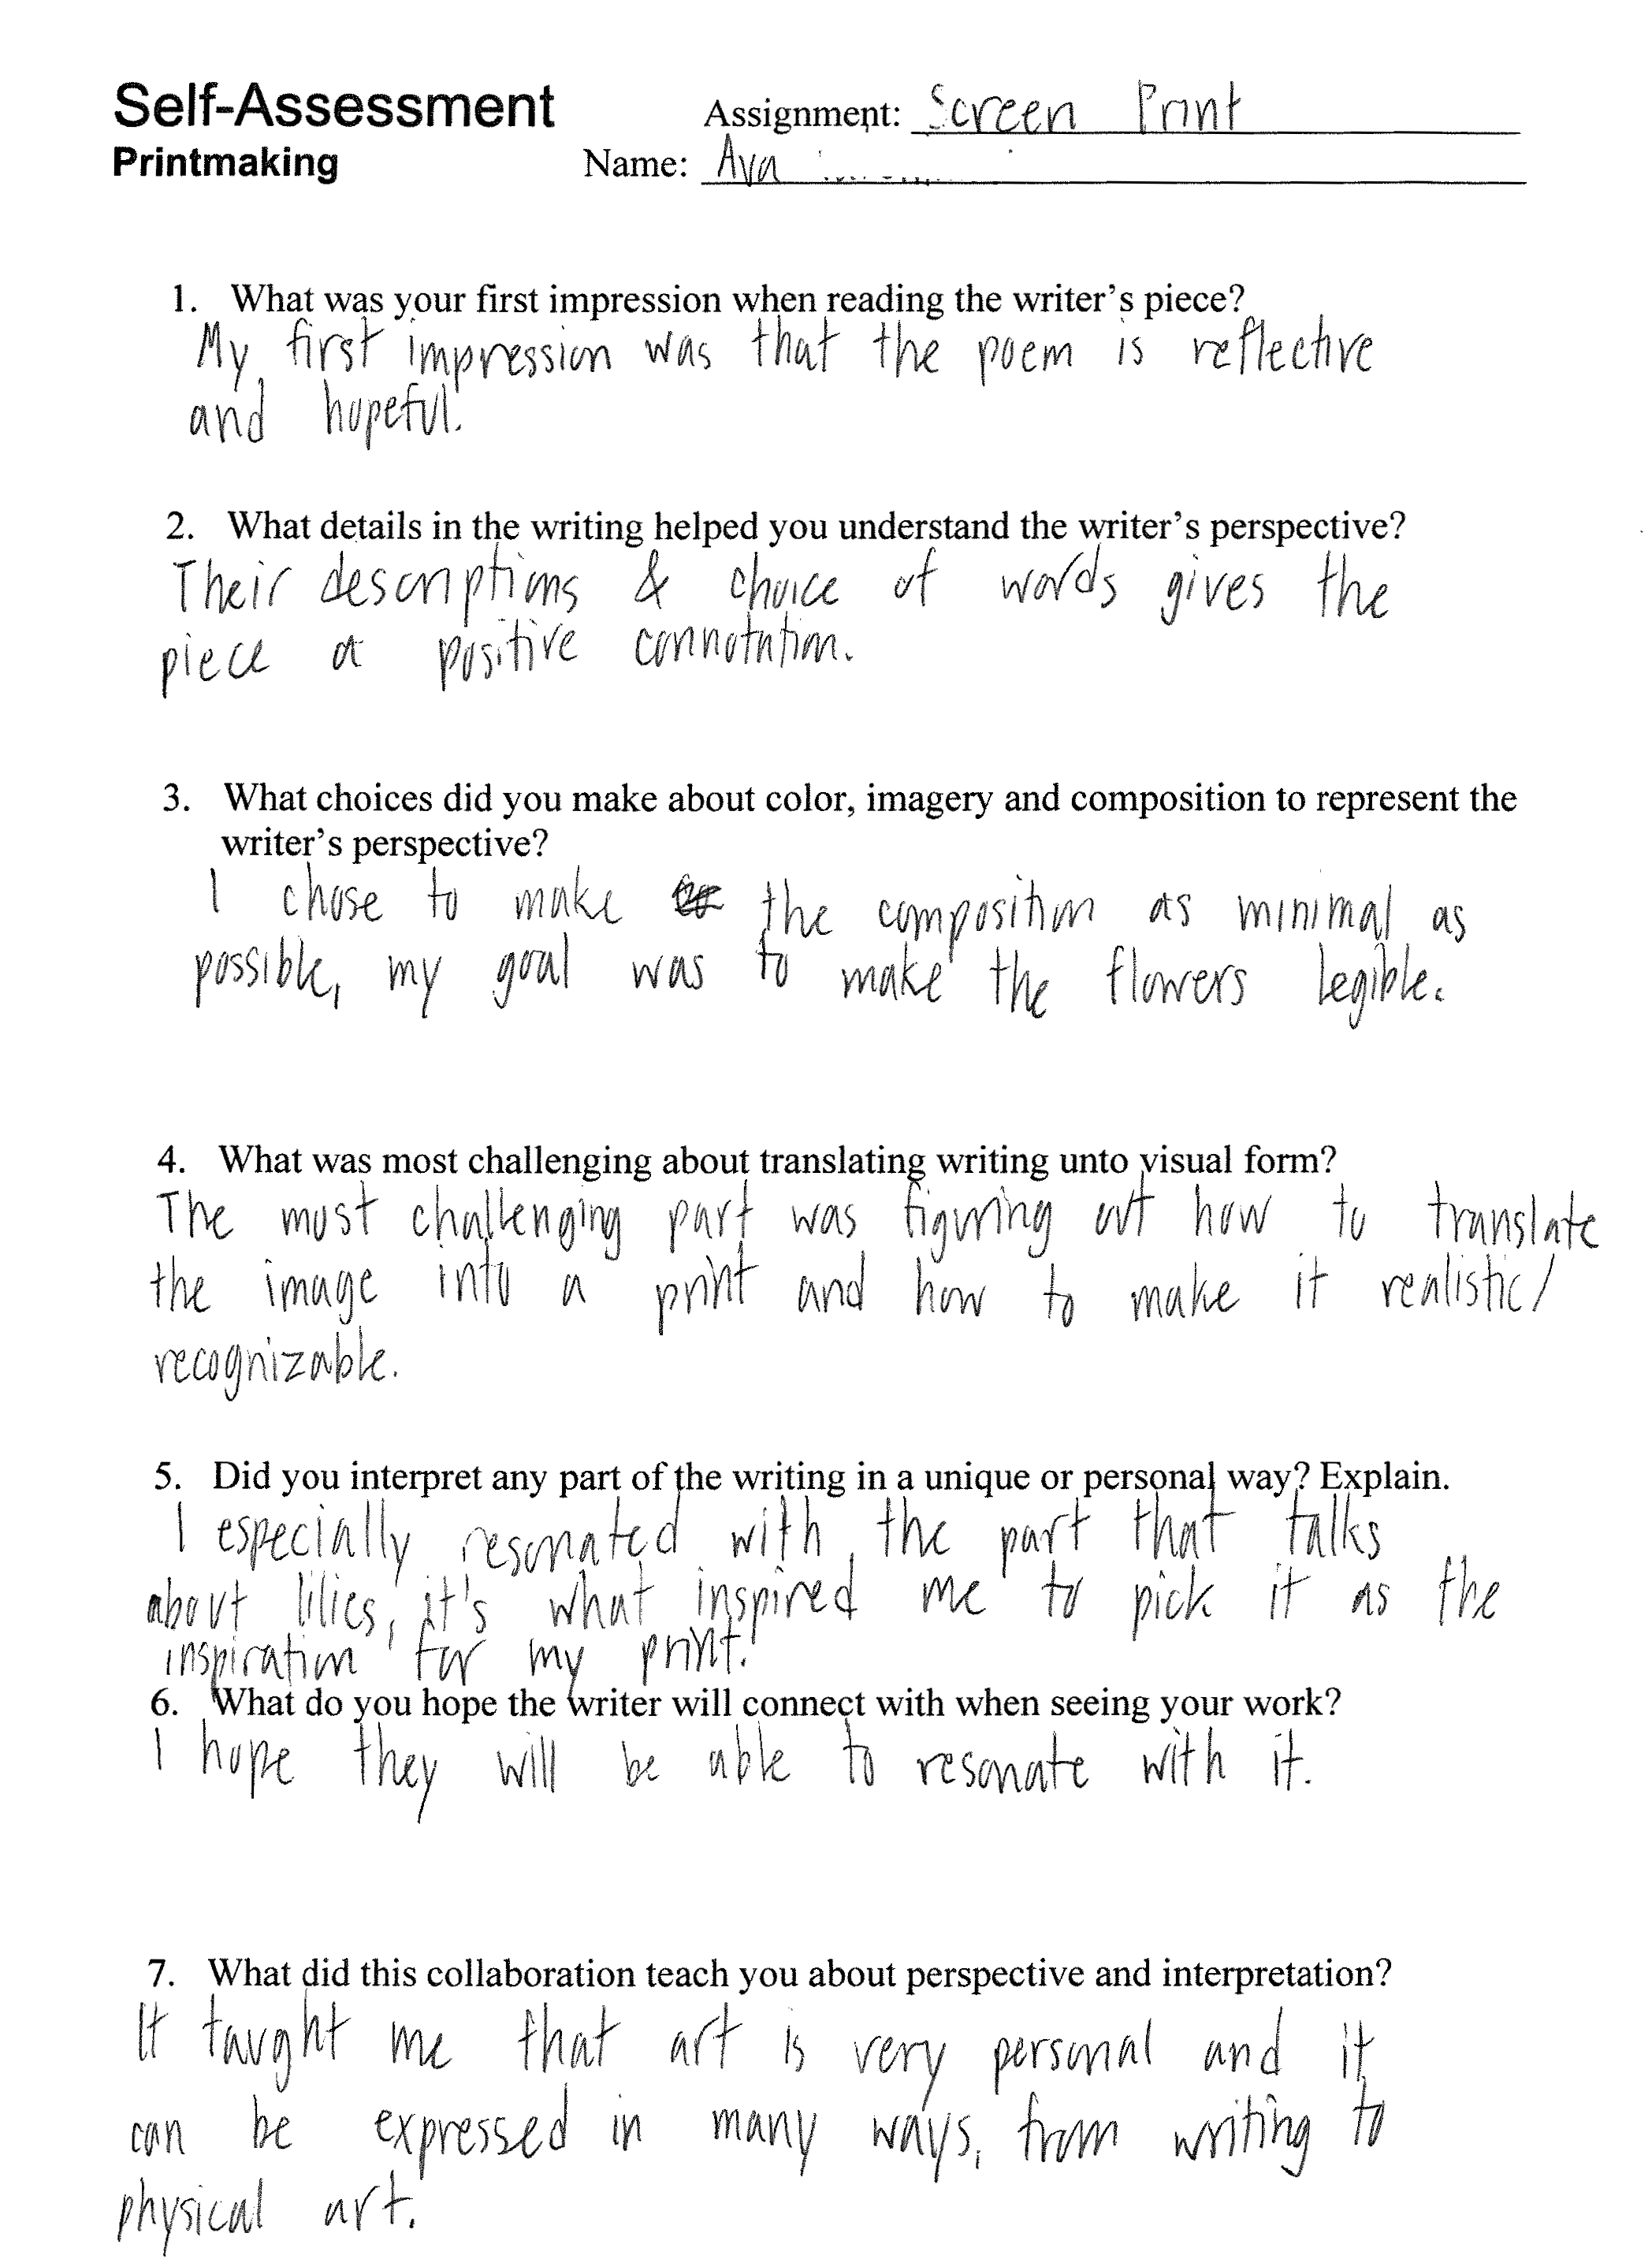 Self-Assessment Assignment: Screen Print
Printmaking Name: Ava
1. What was your first impression when reading the writer's piece?
My first impression was that the poem is reflective
and hopeful.
2. What details in the writing helped you understand the writer's perspective?
Their descriptions & choice of words gives the
piece a positive connotation.
3. What choices did you make about color, imagery and composition to represent the
writer's perspective?
I chose to make the composition as minimal as
possible, my goal was to make the flowers legible.
4. What was most challenging about translating writing unto visual form?
The most challenging part was figuring out how to translate
the image into a print and how to make it realistic/
recognizable.
5. Did you interpret any part of the writing in a unique or personal way? Explain.
I especially resonated with the part that talks
about lilies, it's what inspired me to pick it as the
inspiration for my print.
6. What do you hope the writer will connect with when seeing your work?
I hope they will be able to resonate with it.
7. What did this collaboration teach you about perspective and interpretation?
It taught me that art is very personal and it
can be expressed in many ways, from writing to
physical art.